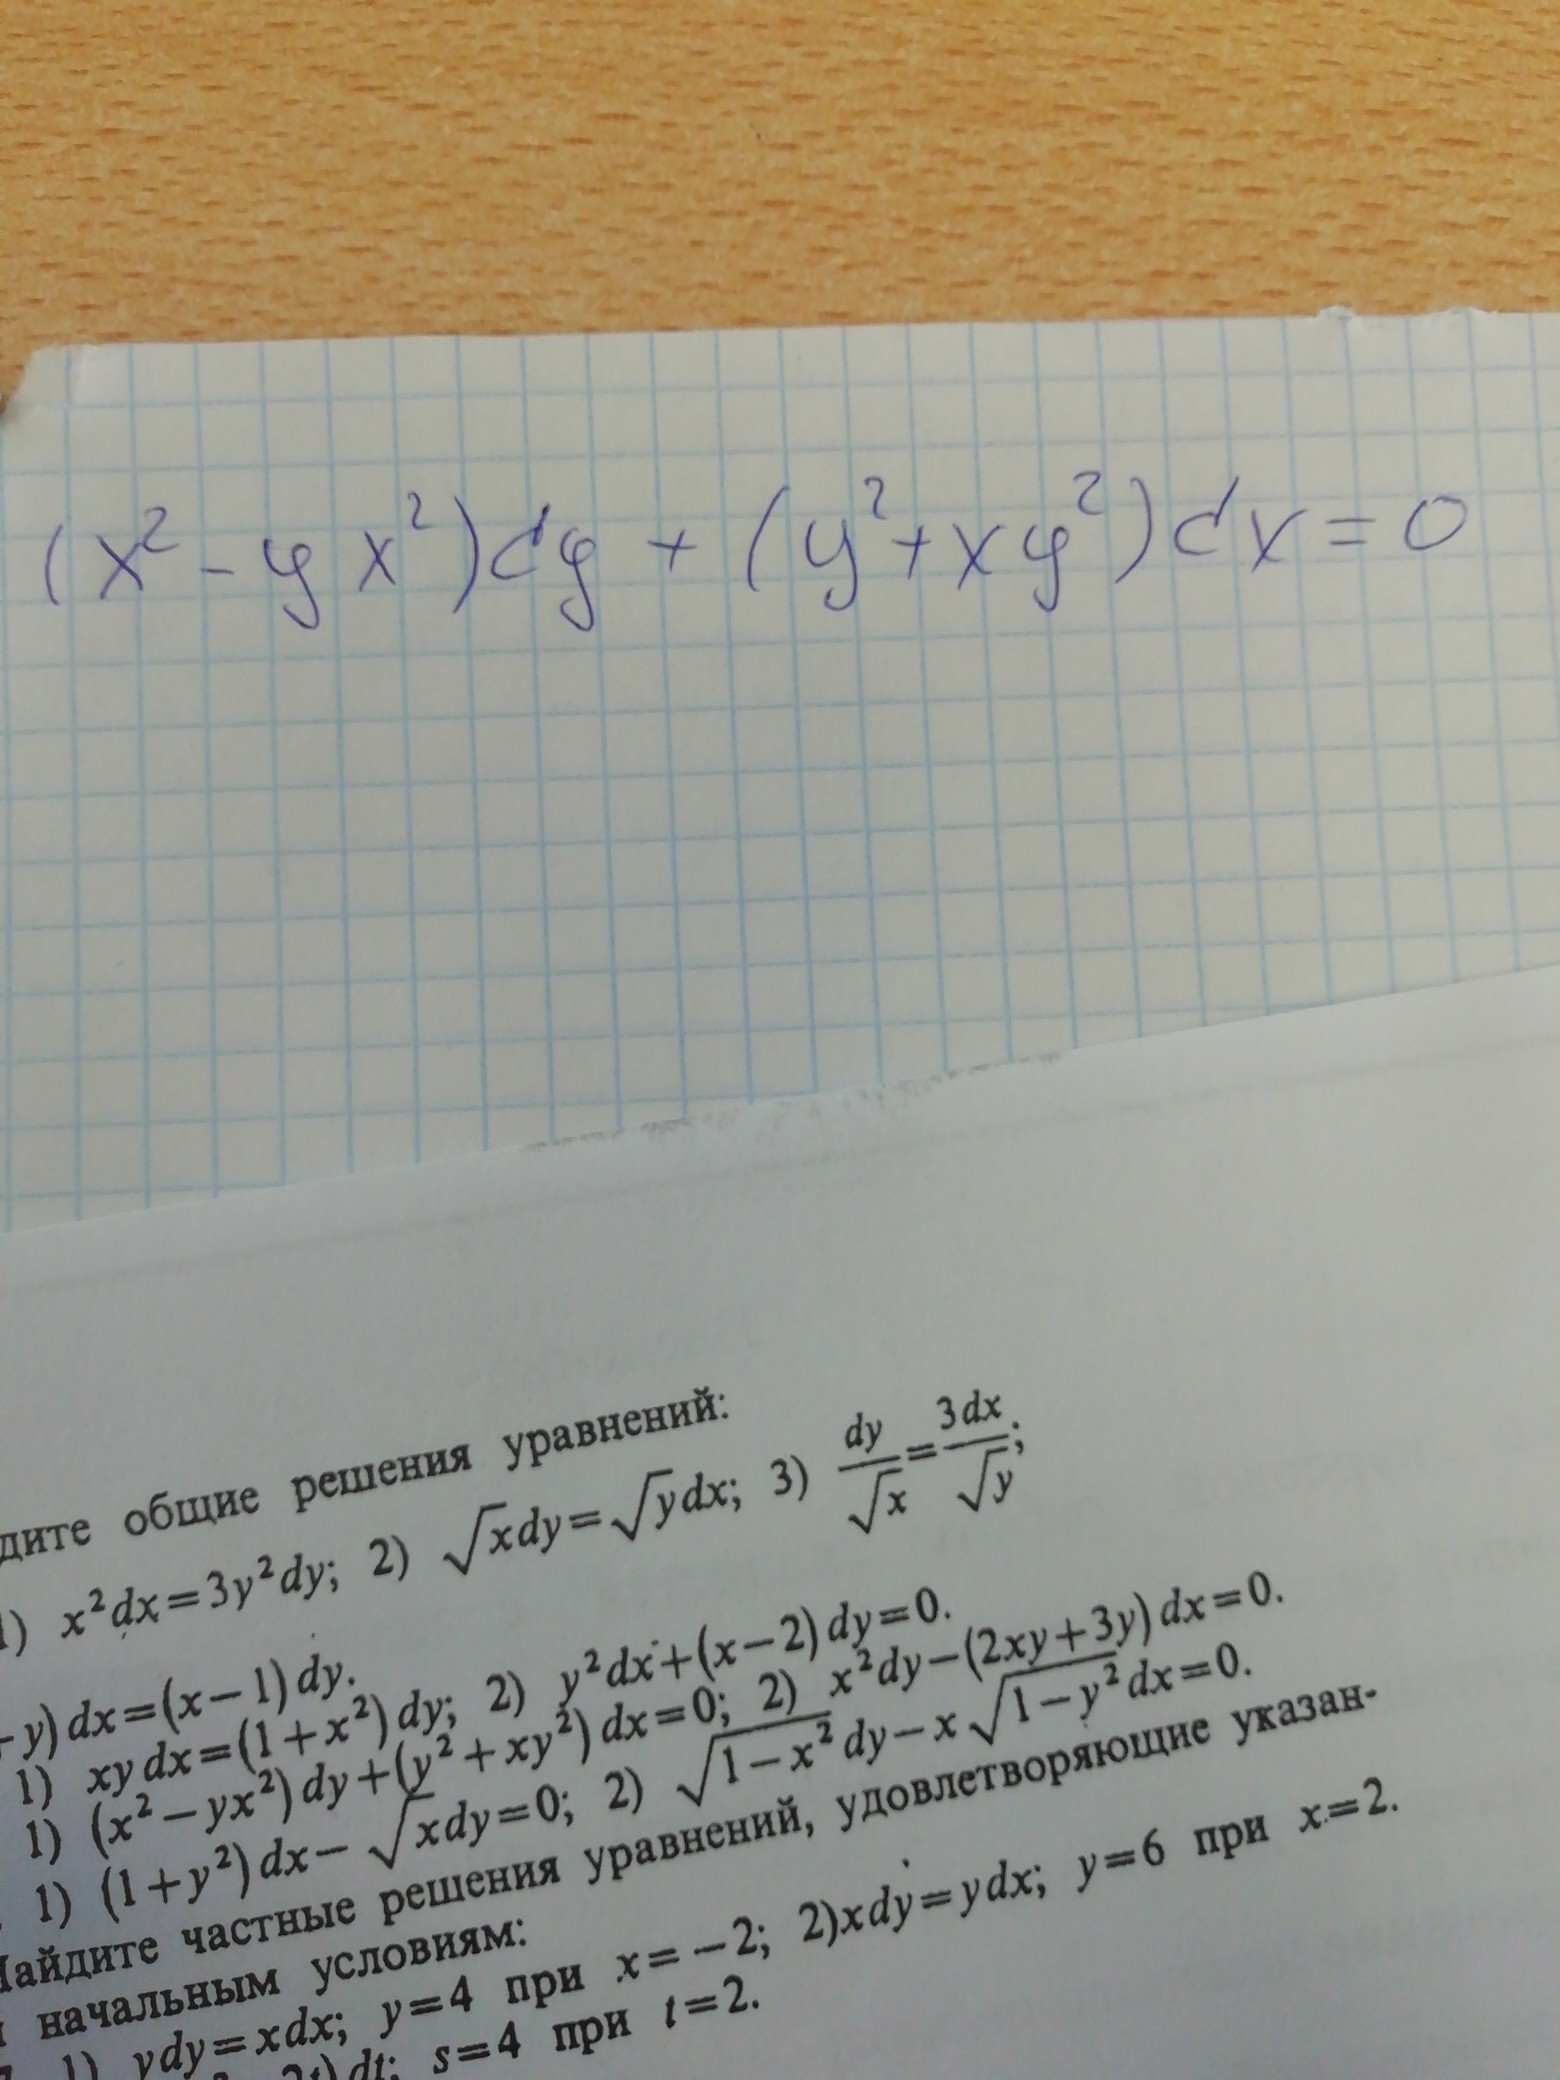 (x² - yx²)dy + (y² + xy²)dx = 0
дите общие решения уравнений:
1) x²dx=3y²dy; 2) √x dy=√y dx; 3) dy/√x=3dx/√y;
y) dx=(x−1) dy.
1) xy dx=(1+x²) dy; 2) y² dx+(x−2) dy=0.
1) (x²−yx²) dy+(y²+xy²) dx=0; 2) x² dy−(2xy+3y) dx=0.
1) (1+y²) dx−√x dy=0; 2) √1−x² dy−x√1−y² dx=0.
Найдите частные решения уравнений, удовлетворяющие указан-
начальным условиям:
1) ydy=xdx; y=4 при x=−2; 2)xdy=ydx; y=6 при x=2.
2t) dt; s=4 при t=2.